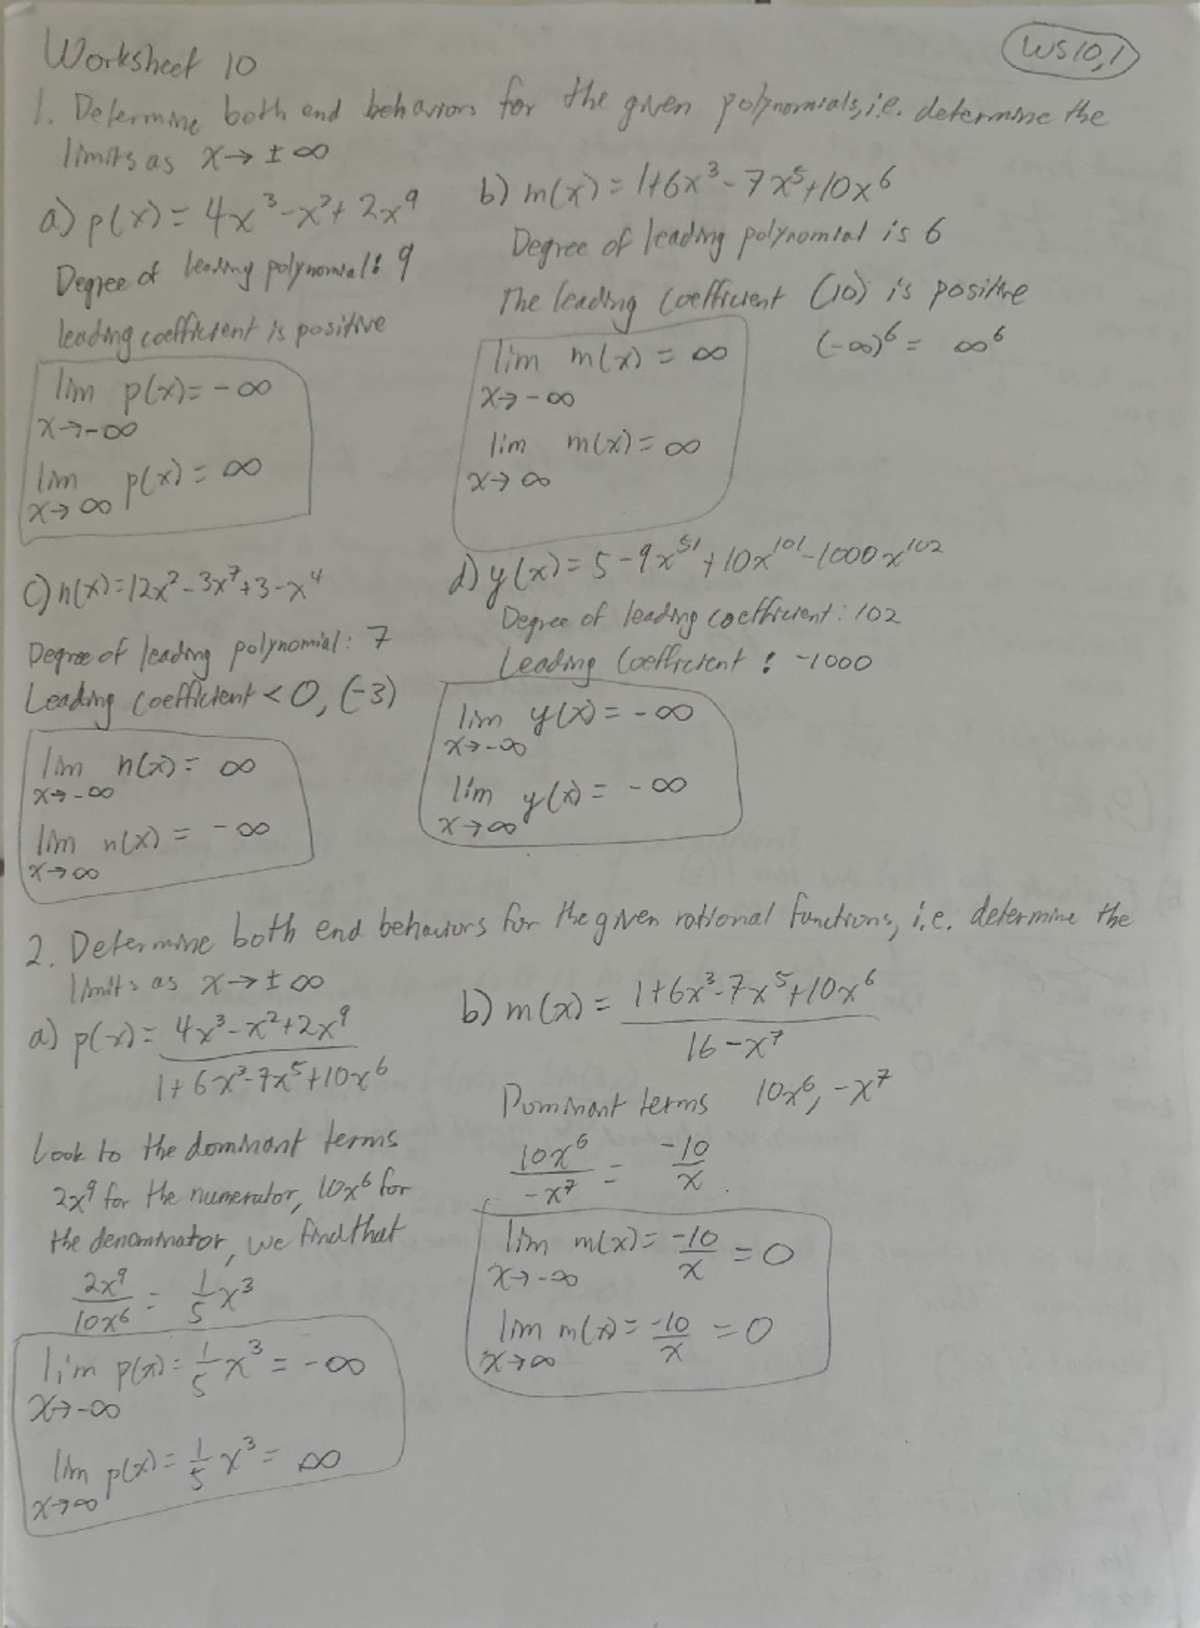 WS10,1
Worksheet 10
1. Determine both end behaviors for the given polynomials, i.e. determine the
limits as x→ ±∞
a) p(x) = 4x³-x²+2x⁹
Degree of leading polynomial: 9
leading coefficient is positive
lim p(x) = -∞
x→-∞
lim p(x) = ∞
x→∞
b) m(x) = 1+6x³-7x⁵+10x⁶
Degree of leading polynomial is 6
The leading coefficient (10) is positive
(-∞)⁶ = ∞⁶
lim m(x) = ∞
x→-∞
lim m(x) = ∞
x→∞
c) n(x) = 12x²-3x⁷+3-x⁴
Degree of leading polynomial: 7
Leading coefficient < 0, (-3)
lim n(x) = ∞
x→-∞
lim n(x) = -∞
x→∞
d) y(x) = 5-9x⁵¹+10x¹⁰¹-1000x¹⁰²
Degree of leading coefficient: 102
Leading Coefficient: -1000
lim y(x) = -∞
x→-∞
lim y(x) = -∞
x→∞
2. Determine both end behaviors for the given rational functions, i.e. determine the
limits as x→ ±∞
a) p(x) = 4x³-x²+2x⁹
1+6x³-7x⁵+10x⁶
Look to the dominant terms
2x⁹ for the numerator, 10x⁶ for
the denominator, we find that
2x⁹/10x⁶ = 1/5 x³
lim p(x) = 1/5 x³ = -∞
x→-∞
lim p(x) = 1/5 x³ = ∞
x→∞
b) m(x) = 1+6x³-7x⁵+10x⁶
16-x⁷
Dominant terms 10x⁶, -x⁷
10x⁶/-x⁷ = -10/x
lim m(x) = -10/x = 0
x→-∞
lim m(x) = -10/x = 0
x→∞